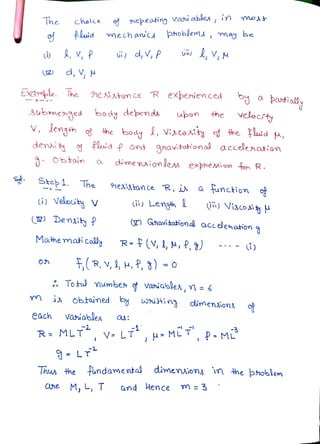 The choice of repeating variables, in most
of fluid mechanics problems, may be
(i) l, v, ρ (ii) d, v, ρ (iii) l, v, μ
(iv) d, v, μ
Example. The resistance R experienced by a partially
submerged body depends upon the velocity
V, length of the body l, Viscosity of the fluid μ,
density of fluid ρ and gravitational acceleration
g. Obtain a dimensionless expression for R.
Sol. Step 1. The resistance R, is a function of
(i) Velocity V (ii) Length l (iii) Viscosity μ
(iv) Density ρ (v) Gravitational acceleration g
Mathematically R = f (V, l, μ, ρ, g) ---- (i)
or f₁ (R, V, l, μ, ρ, g) = 0
∴ Total number of variables, n = 6
m is obtained by writing dimensions of
each variables as:
R = MLT⁻², V = LT⁻¹, μ = ML⁻¹T⁻¹, ρ = ML⁻³
g = LT⁻²
Thus the fundamental dimensions in the problem
are M, L, T and Hence m = 3